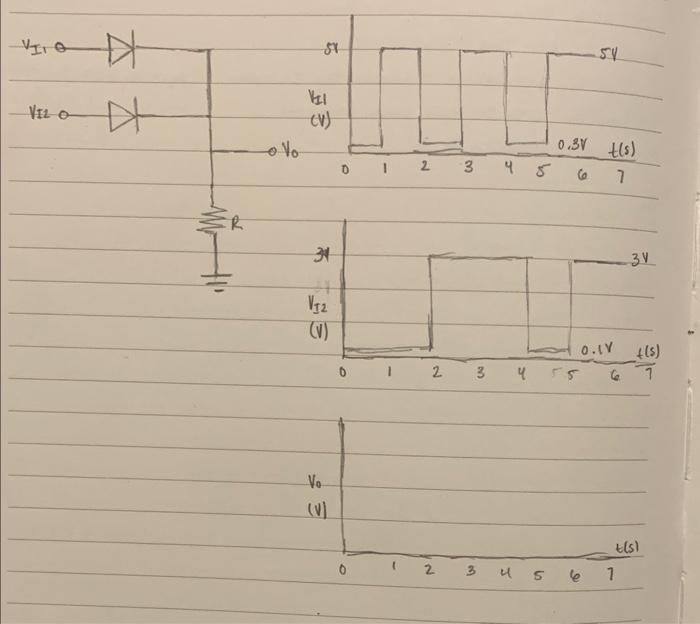 VI1
VI2
Vo
R
5V
VI1
(V)
5V
0.3V
t(s)
0 1 2 3 4 5 6 7
3V
VI2
(V)
3V
0.1V
t(s)
0 1 2 3 4 5 5 6 7
Vo
(V)
t(s)
0 1 2 3 4 5 6 7